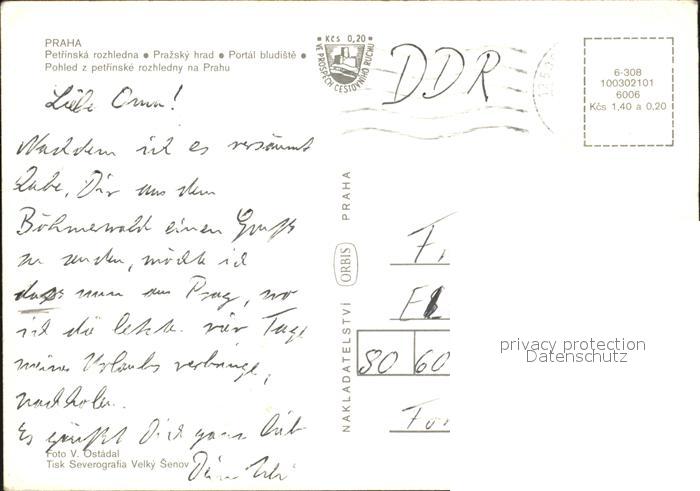 PRAHA
Petřínská rozhledna • Pražský hrad • Portál bludiště •
Pohled z petřínské rozhledny na Prahu
• Kčs 0,20 •
VE PROSPĚCH CESTOVNÍHO RUCHU
DDR
6-308
100302101
6006
Kčs 1,40 a 0,20
Liebe Oma!
Nachdem ich es versäumt
habe, Dir aus dem
Böhmerwald einen Gruß
zu senden, möchte ich
das nun aus Prag, wo
ich die letzten vier Tage
meines Urlaubs verbringe,
nachholen.
Es grüßt Dich ganz lieb
Dein
NAKLADATELSTVÍ ORBIS PRAHA
F
E
80 60
privacy protection
Datenschutz
Foto V. Ostádal
Tisk Severografia Velký Šenov